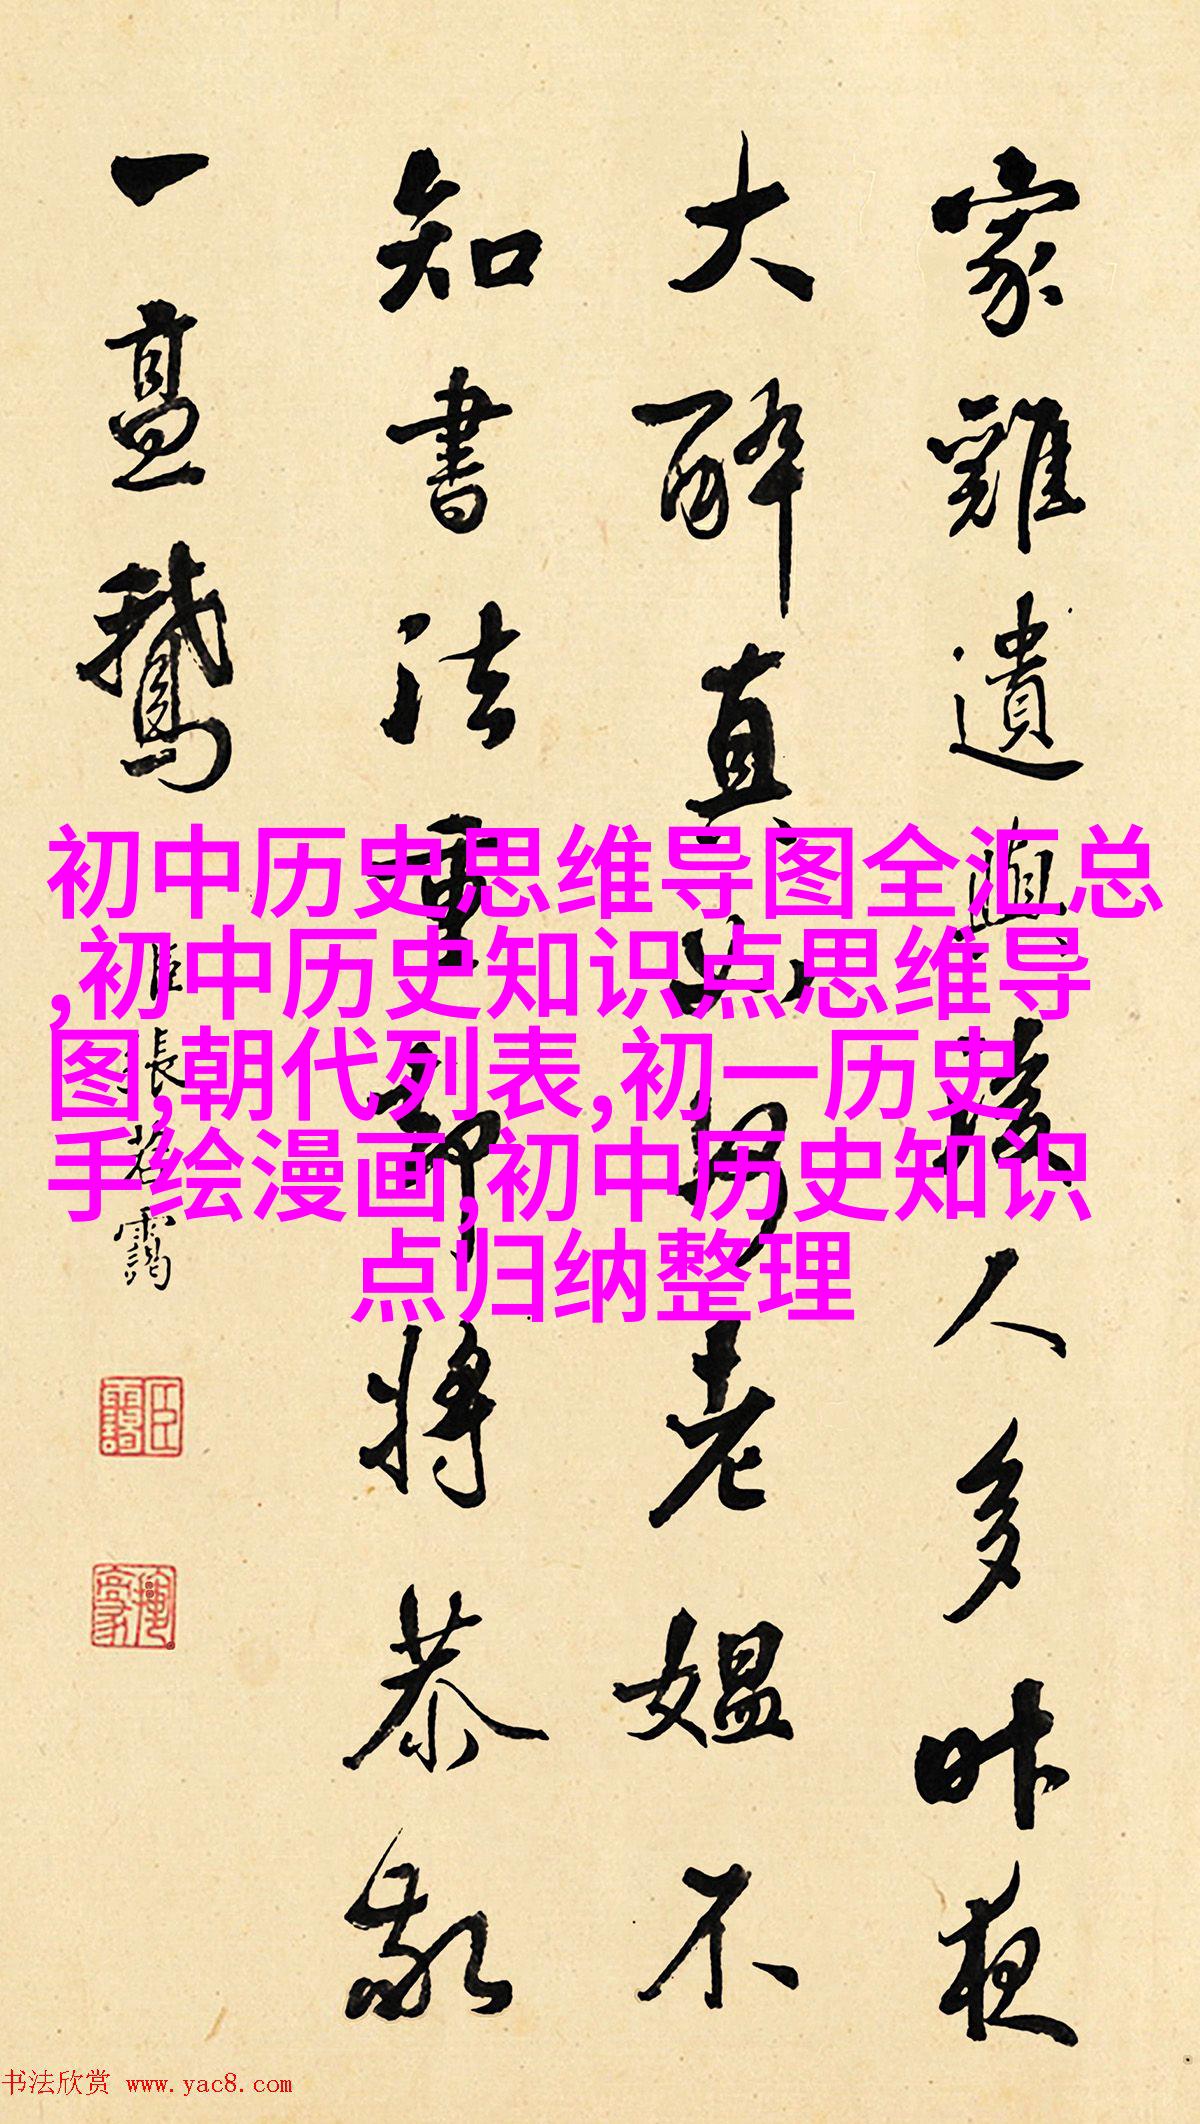 家雞遺與後人多昨夜
大醉真如
老媼不
知書法重
將恭敬
一壺鵝
臣張若靄
初中历史思维导图全汇总
,初中历史知识点思维导
图,朝代列表,初一历史
手绘漫画,初中历史知识
点归纳整理
书法欣赏 www.yac8.com